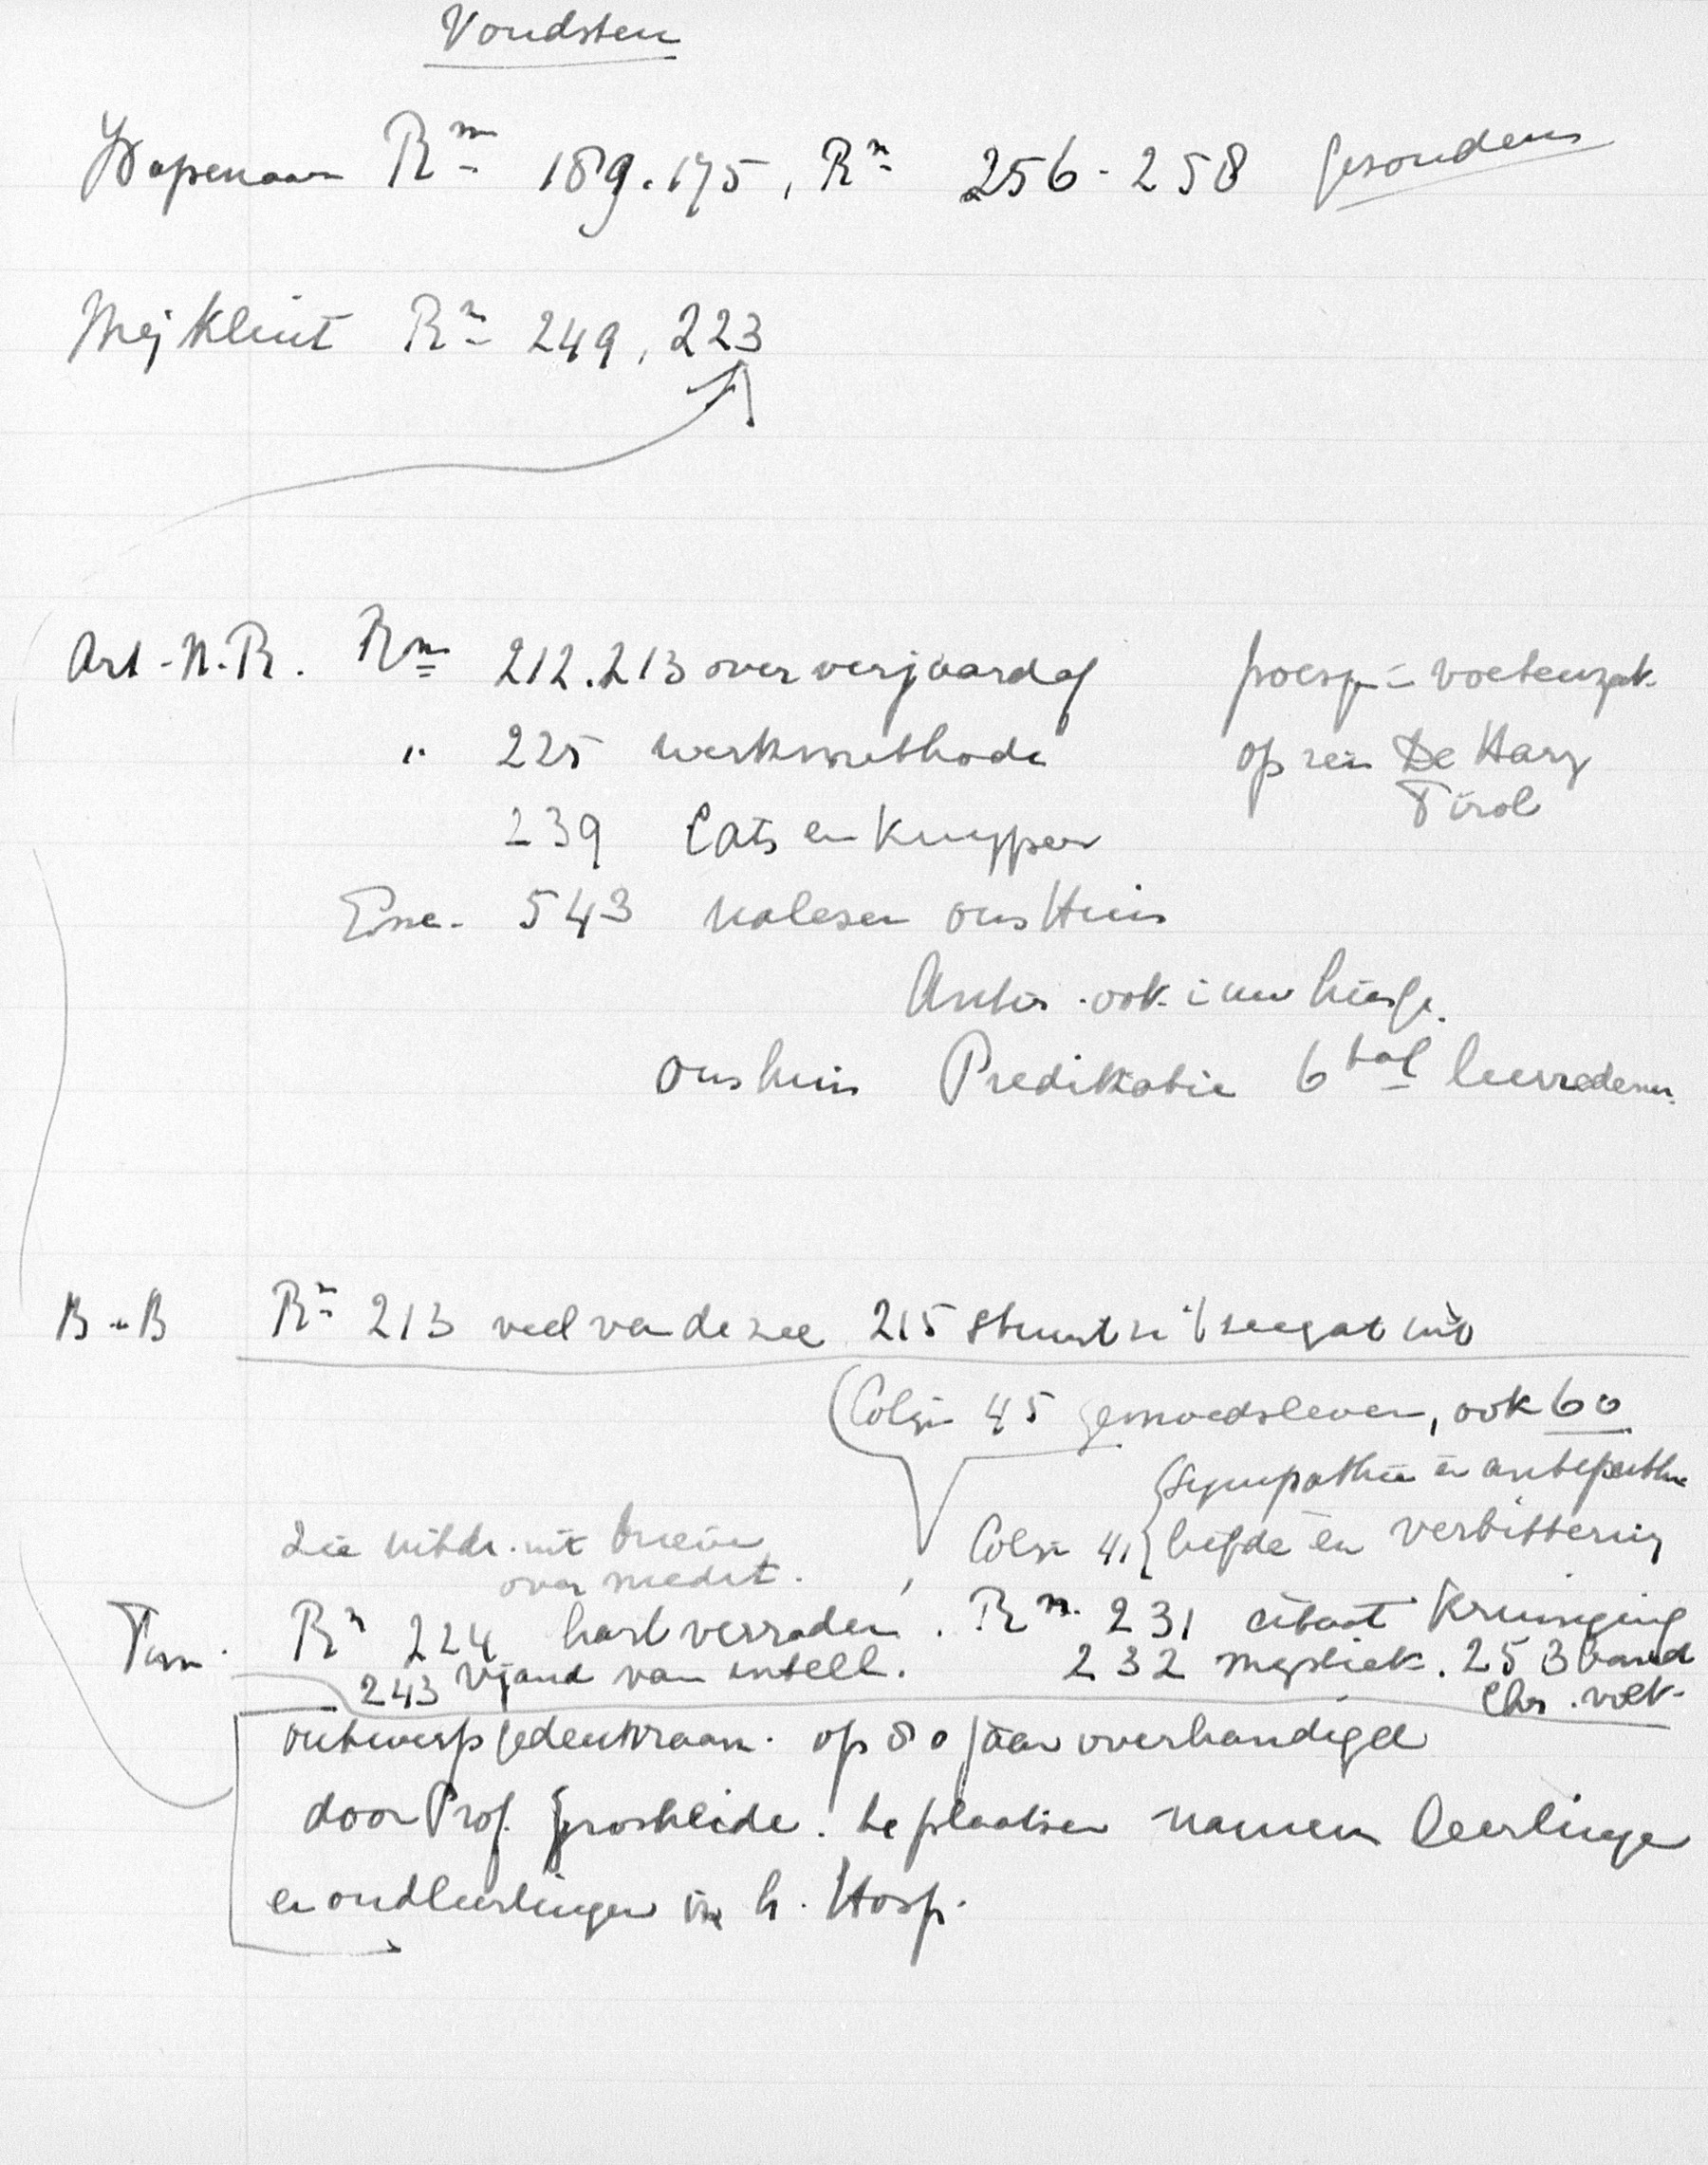 Vondsten
Wapenaar Rm 189.175, Rn 256-258 gezonden
Mej Klint Rn 249, 223
Art-N.R. Rm 212.213 over verjaardag poesje = voetenzak
" 225 werkmethode op reis De Harz
Tirol
239 Cats en Kuyper
543 nalezen ons Huis
ook
ons huis Predikatie 6 tal leerredenen
B-B Rn 213 veel van de zee 215 stuurt ze 't zeegat uit
(Colijn 45 gemoedsleven, ook 60
Sympathie en antipathie
Colijn 41 liefde en verbittering
Zie uit brieven
over medit.
Rn 224 hart verraden. Rn. 231 citaat kruisiging
243 vijand van intell. 232 mystiek. 253 band
Chr. volk
ontwerp gedenkraam. op 80 jaar overhandigd
door Prof. Grosheide. te plaatsen namen leerlingen
en oudleerlingen in h. Hosp.